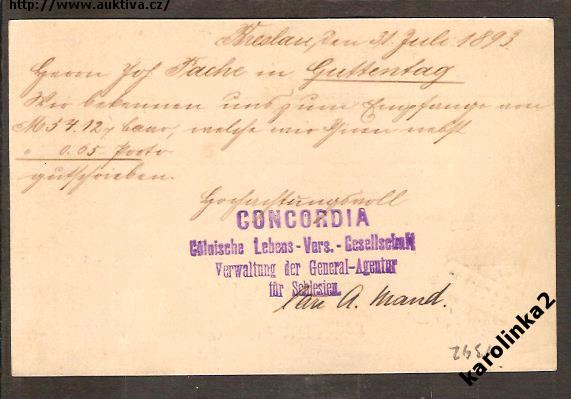 http://www.auktiva.cz/
Breslau, den 31 Juli 1893.
Herrn Jos Pache in Guttentag
Wir bekennen uns zum Empfange von
M 54.12 baar, welche wir Ihnen nebst
" 0.05 Porto
gutschrieben.
Hochachtungsvoll
CONCORDIA
Cölnische Lebens-Vers.-Gesellschaft
Verwaltung der General-Agentur
für Schlesien.
A. Mand.
karolinka2